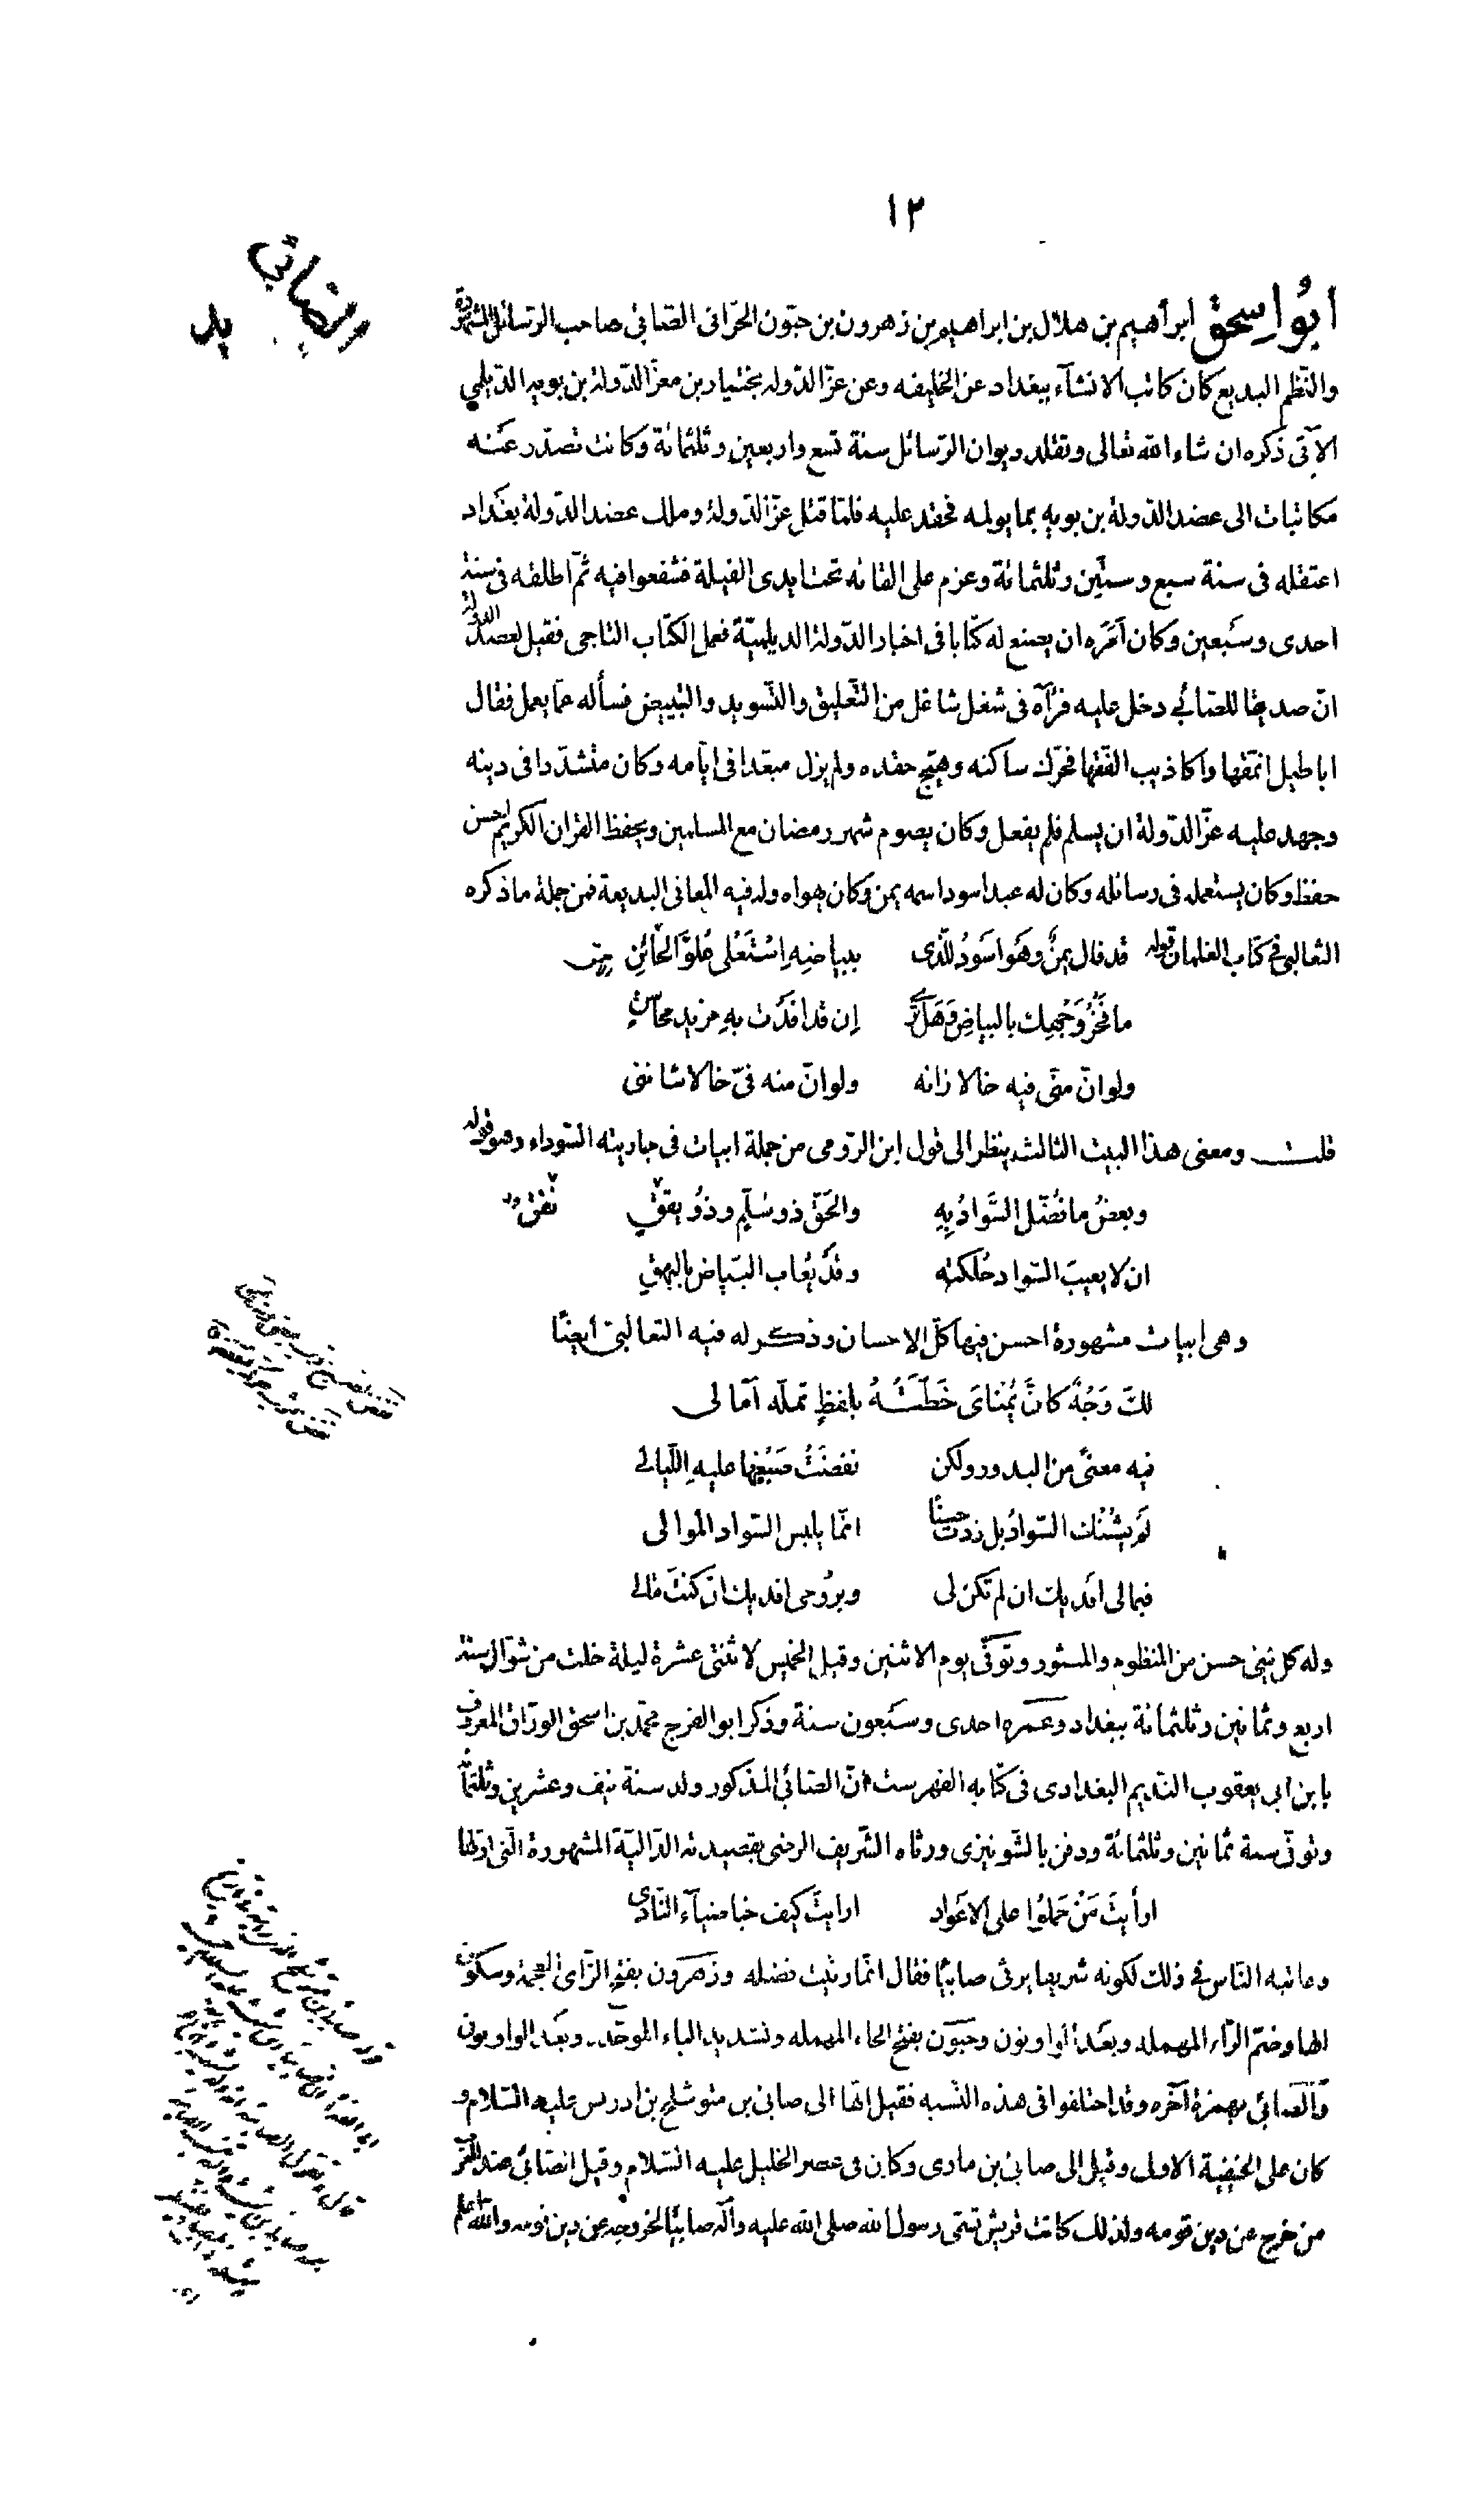 ١٣
الصابئ
يد
ابو اسحق ابراهيم بن هلال بن ابراهيم بن زهرون بن حبون الحرّانى الصّابئ صاحب الرسائل المشهورة
والنّظم البديع كان كاتب الانشآء ببغداد عن الخليفه وعن عزّ الدّوله بختيار بن معزّ الدّولة بن بويه الدّيلمي
الآتى ذكره ان شاء الله تعالى وتقلد ديوان الرّسائل سنة تسع واربعين وثلثمائة وكانت تصدر عنه
مكاتبات الى عضد الدّولة بن بويه بما يولمه فحقد عليه فلمّا قتل عزّ الدّولة وملك عضد الدّولة بغداد
اعتقله فى سنة سبع وستّين وثلثمائة وعزم على القائه تحت ايدى الفيلة فشفعوا فيه ثمّ اطلقه فى سنة
احدى وسبعين وكان امره ان يصنع له كتابا فى اخبار الدّولة الديلميّة فعمل الكتاب التاجى فقيل لعضد الدولة
انّ صديقا للصّابئ دخل عليه فرآه فى شغل شاغل من التّعليق والتّسويد والتبييض فسأله عمّا يعمل فقال
اباطيل انمّقها واكاذيب الفقها فحرّك ساكنه وهيّج حقده ولم يزل مبعّدا فى ايّامه وكان متشدّدا فى دينه
وجهد عليه عزّ الدّولة ان يسلم فلم يفعل وكان يصوم شهر رمضان مع المسلمين ويحفظ القران الكريم احسن
حفظ وكان يستعمله فى رسائله وكان له عبد اسود اسمه يمن وكان يهواه وله فيه المعانى البديعة فمن جملة ما ذكره
الثعالبى فى كتاب الغلمان قوله قد قال يمنٌ وهو اسودُ للّذى ببياضِهِ استَعلى عُلوَّ الخائنِ
ما فَخرُ وَجهِك بالبياضِ وَهَل تَرى اِن قد افدت بهِ مزيد محاسنِ
ولو انّ منّى فيه خالا زانه ولو انّ منه فىّ خالا شاننى
قلت ومعنى هذا البيت الثالث ينظر الى قول ابن الرّومى من جملة ابيات فى جاريته السّوداء وهو قوله
وبعضُ ما فُضّل السَّوادُ بِهِ والحَقّ ذو سُلّمٍ وذو نَفَقِ
ان لا يعيبَ السّوادَ حُلكتُه وقد يُعاب البَياض بالبهقِ
وهى ابيات مشهورة احسن فيها كلّ الاحسان وذكر له فيه الثعالبىّ ايضًا
لكَ وَجهٌ كانّ يُمناىَ خَطّتهُ بلفظٍ تملّه آمالى
فيه معنًى من البدور ولكن نفضَتْ صَبغَها عليهِ اللّيالى
لم يشِنك السّوادُ بل زدت حسنًا انّما يلبس السّواد الموالى
فبمالى افديك ان لم تكن لى وبروحى افديك ان كنتَ مالى
وله كل شئ حسن من المنظوم والمنثور وتوفّى يوم الاثنين وقيل الخميس لاثنتى عشرة ليلة خلت من شوّال سنة
اربع وثمانين وثلثمائة ببغداد وعمره احدى وسبعون سنة وذكر ابو الفرج محمّد بن اسحق الورّاق المعروف
بابن ابى يعقوب النديم البغدادى فى كتابه الفهرست انّ الصّابئ المذكور ولد سنة نيف وعشرين وثلثمائة
وتوفّى سنة ثمانين وثلثمائة ودفن بالشّونيزى ورثاه الشّريف الرضى بقصيدته الدّاليّة المشهورة الّتى اوّلها
ارأيتَ مَنْ حَملوا على الاعواد ارايتَ كيف خبا ضيآء النّادى
وعاتبه النّاس فى ذلك لكونه شريفا يرثى صابئًا فقال انّما رثيت فضله وزهرون بفتح الزّاى المعجمة وسكون
الها وضمّ الرّاء المهمله وبعد الواو نون وحبّون بفتح الحاء المهمله وتشديد الباء الموحّدة وبعد الواو نون
والصّابئ بهمزة آخره وقد اختلفوا فى هذه النّسبه فقيل انّها الى صابئ بن متوشلح بن ادريس عليه السّلام و
كان على الحنيفية الاولى وقيل الى صابئ بن مادى وكان فى عصر الخليل عليه السّلام وقيل الصّابئ عند العرب
من خرج عن دين قومه ولذلك كانت قريش تسمّى رسول الله صلى الله عليه وآله صابئًا لخروجه عن دين قومه والله اعلم